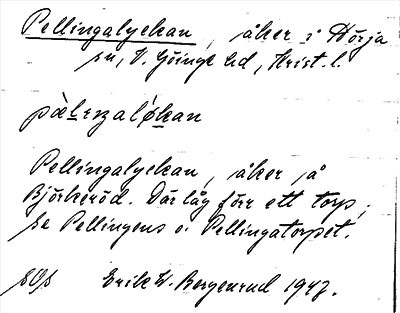 Pellingalyckan, åker i Hörja
sn, V. Göinge hd, Krist. l.
Pellingalyckan, åker på
Björkeröd. Där låg förr ett torp,
se Pellingens o. Pellingatorpet.
Erik W. Bergenrud 1947.